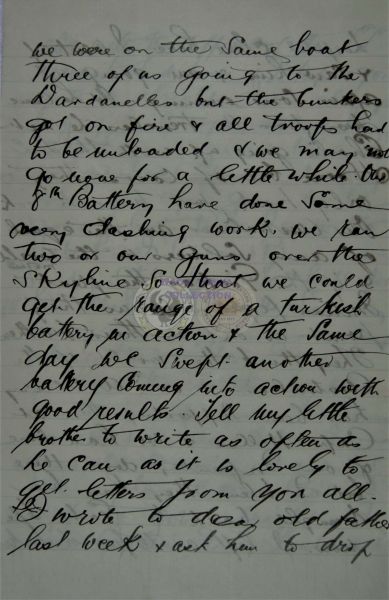 we were on the same boat
three of us going to the
Dardanelles but the bunkers
got on fire & all troops had
to be unloaded & we may not
go now for a little while. The
8th Battery have done some
very dashing work. we ran
two or our Guns over the
skyline so that we could
get the range of a turkish
battery in action & the same
day we swept another
battery coming into action with
good results. Tell my little
brother to write as often as
he can as it is lovely to
get letters from you all.
I wrote to dear old father
last week & ask him to drop